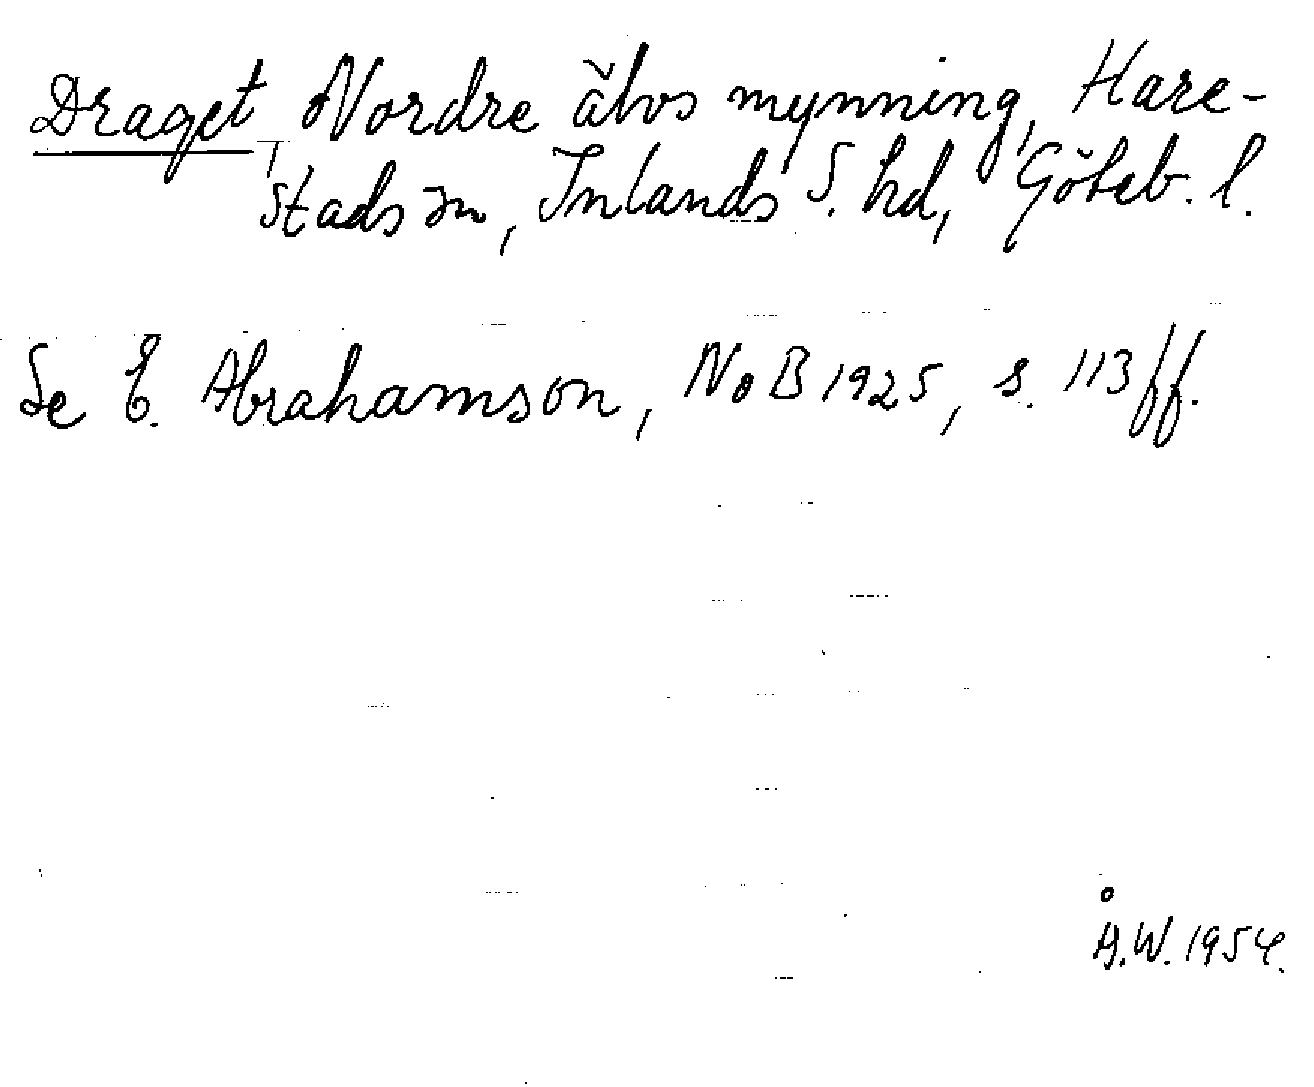 Draget, Nordre älvs mynning, Hare-
stads sn, Inlands S. hd, Göteb. l.
Se E. Abrahamson, NoB 1925, s. 113 ff.
Å.W. 1954.